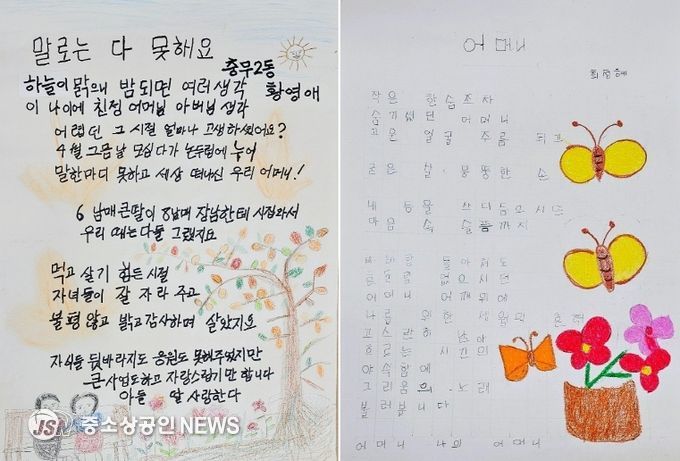 말로는 다 못해요
충무2동
황영애
하늘이 맑으내 밤되면 여러생각
이 나이에 친정 어머님 아버님 생각
어렵던 그 시절 얼마나 고생하셨어요?
4월 그믐날 모심다가 논두렁에 누어
말한마디 못하고 세상 떠나신 우리 어머니!
6남매 큰딸이 8남매 장남한테 시집와서
우리 때는 다들 그랬지요
먹고 살기 힘든 시절
자녀들이 잘 자라 주고
불평않고 밝고 감사하며 살았지요
자식들 뒷바라지도 응원도 못해주었지만
큰 사업도하고 자랑스럽기만 합니다
아들 딸 사랑한다
JS 중소상공인 NEWS
어머니
작은 한숨조차
숨기셨던 어머니
고운 얼굴 주름 되고
굳은 살 뭉뚱한 손
내 등을 쓰다듬으시면
마음 속 슬픔까지
돌아서도
없으시던
어머니 어깨위에
나를 위한 세월의 흔적
고스란히 남아
흐르는 시간의
야속함에
그리움의 노래
불러봅니다
어머니 나의 어머니